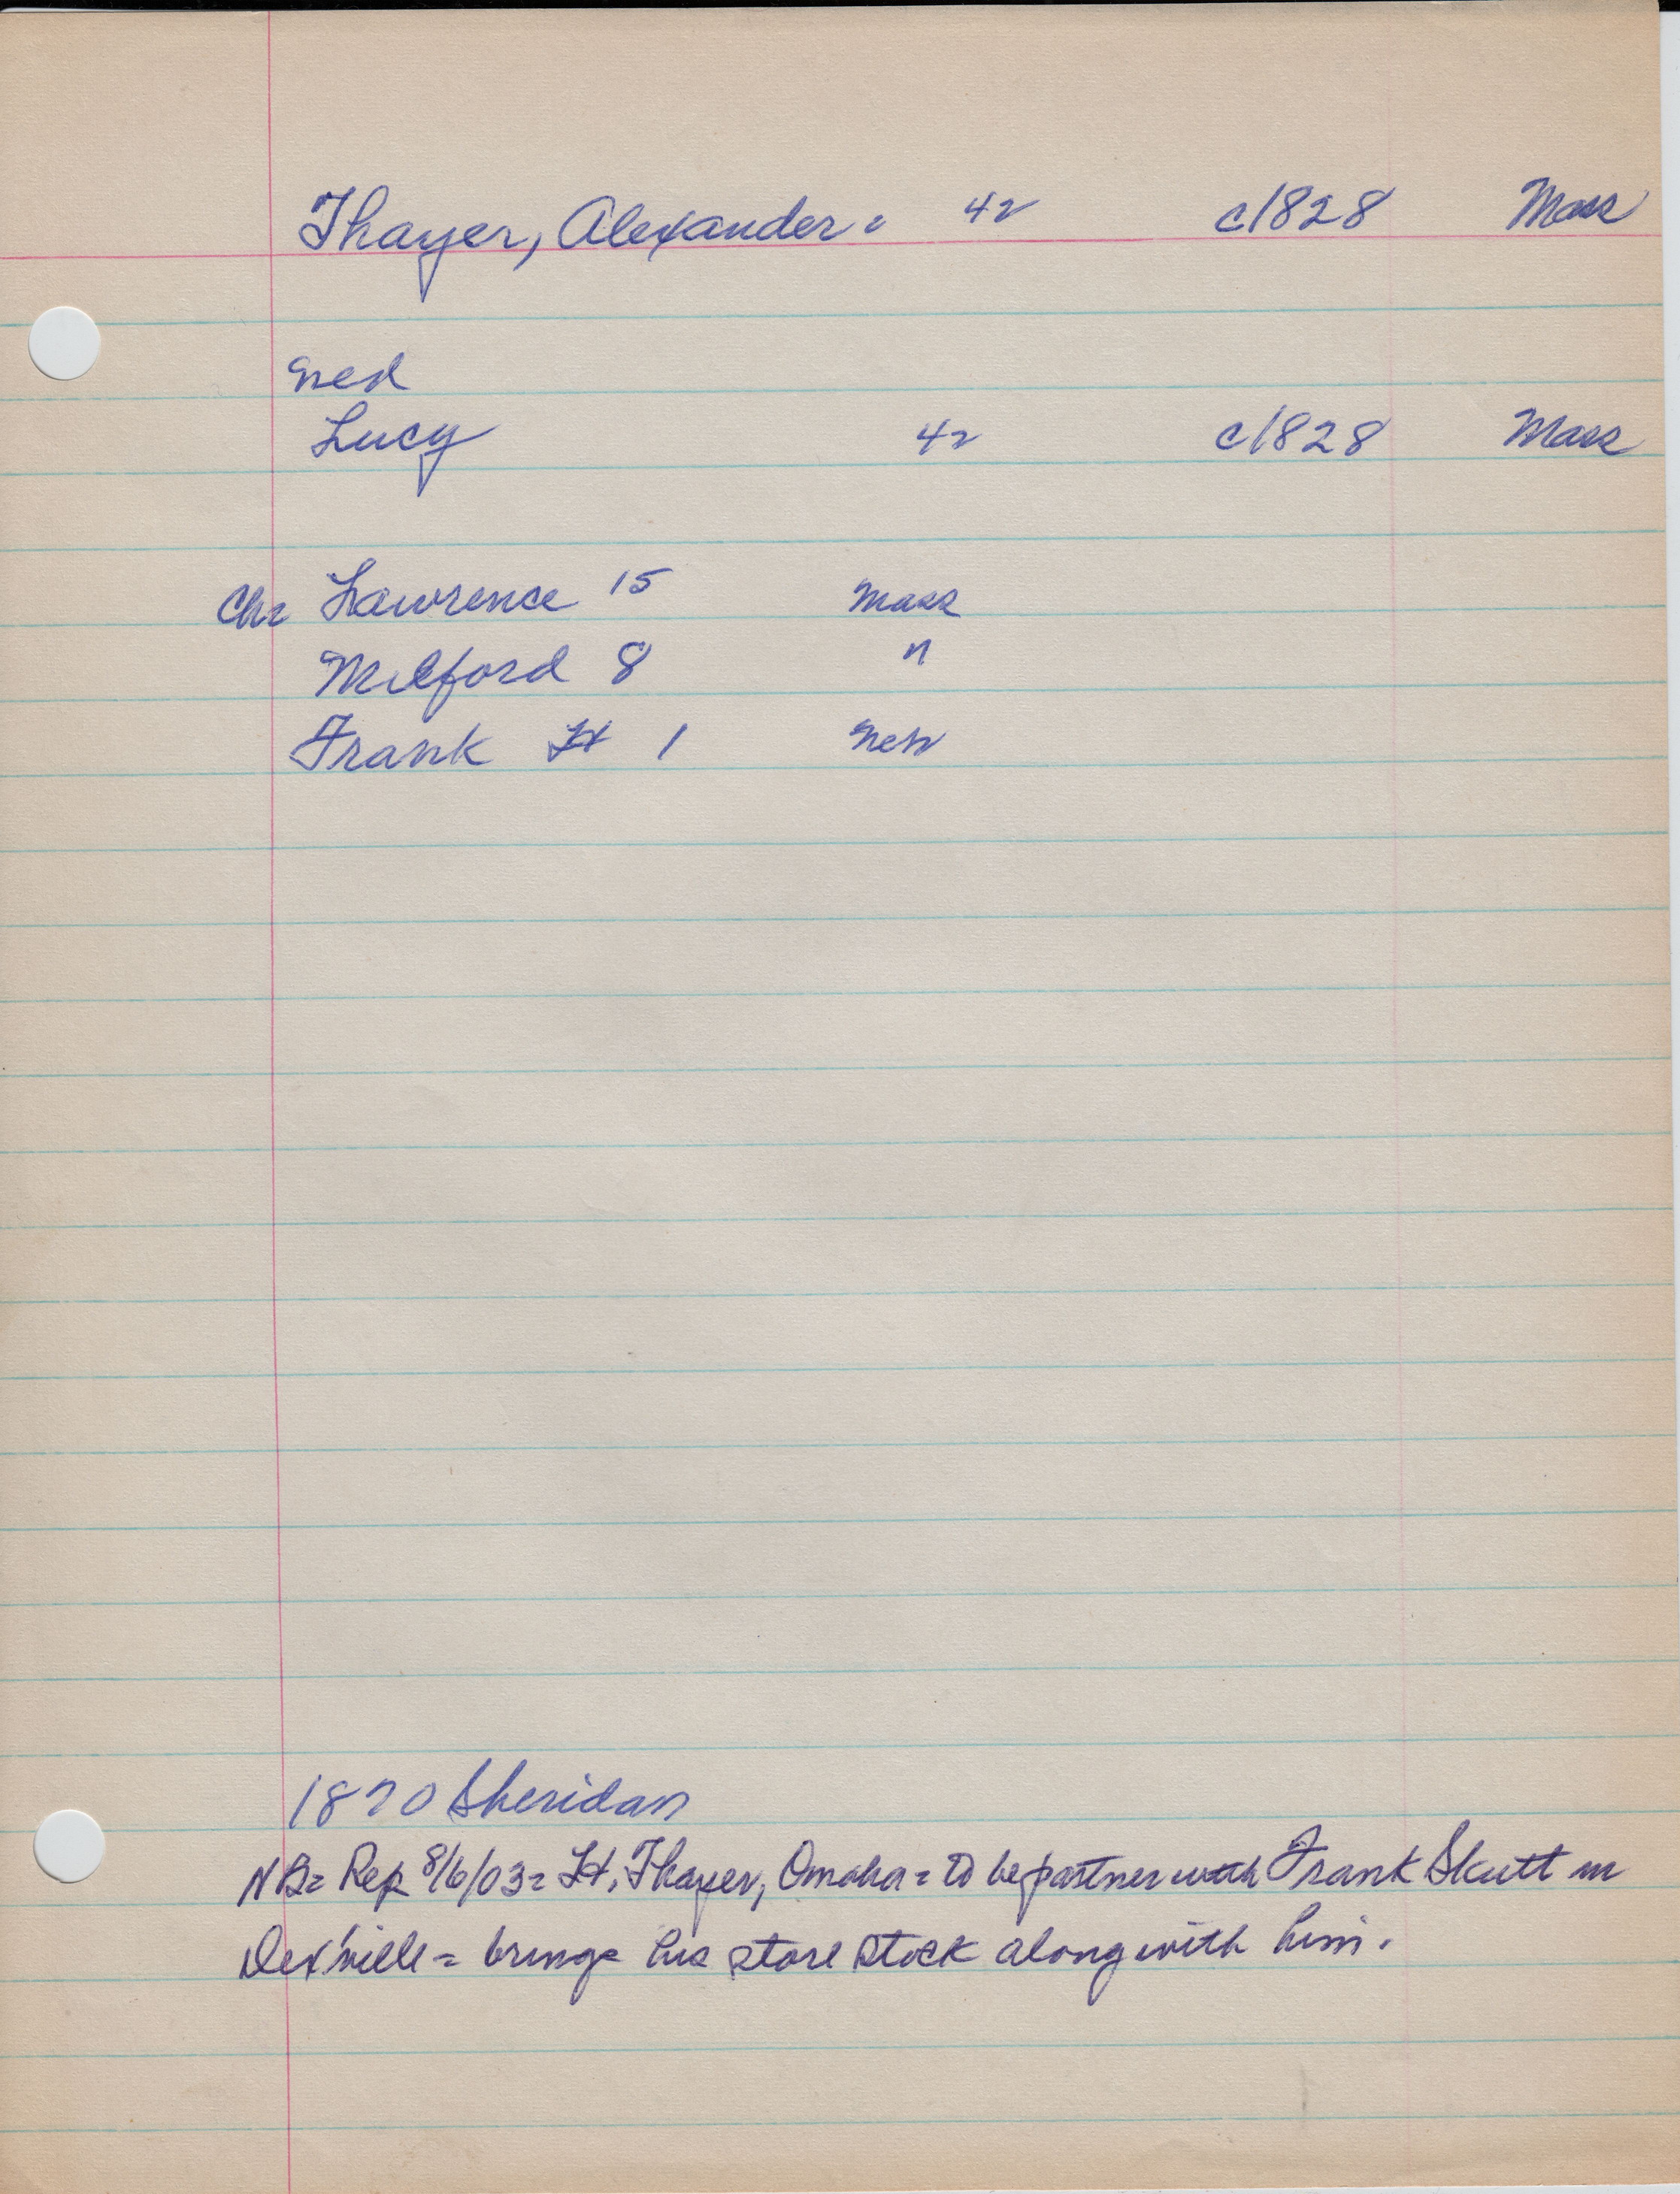 Thayer, Alexander = 42 c1828 Mass
Med
Lucy 42 c1828 Mass
Chr Lawrence 15 Mass
Milford 8 "
Frank H 1 Neb
1870 Sheridan
NB= Rep 8/6/03= H. Thayer, Omaha = to be partner with Frank Skutt in
Dex'ville = brings his store stock along with him.